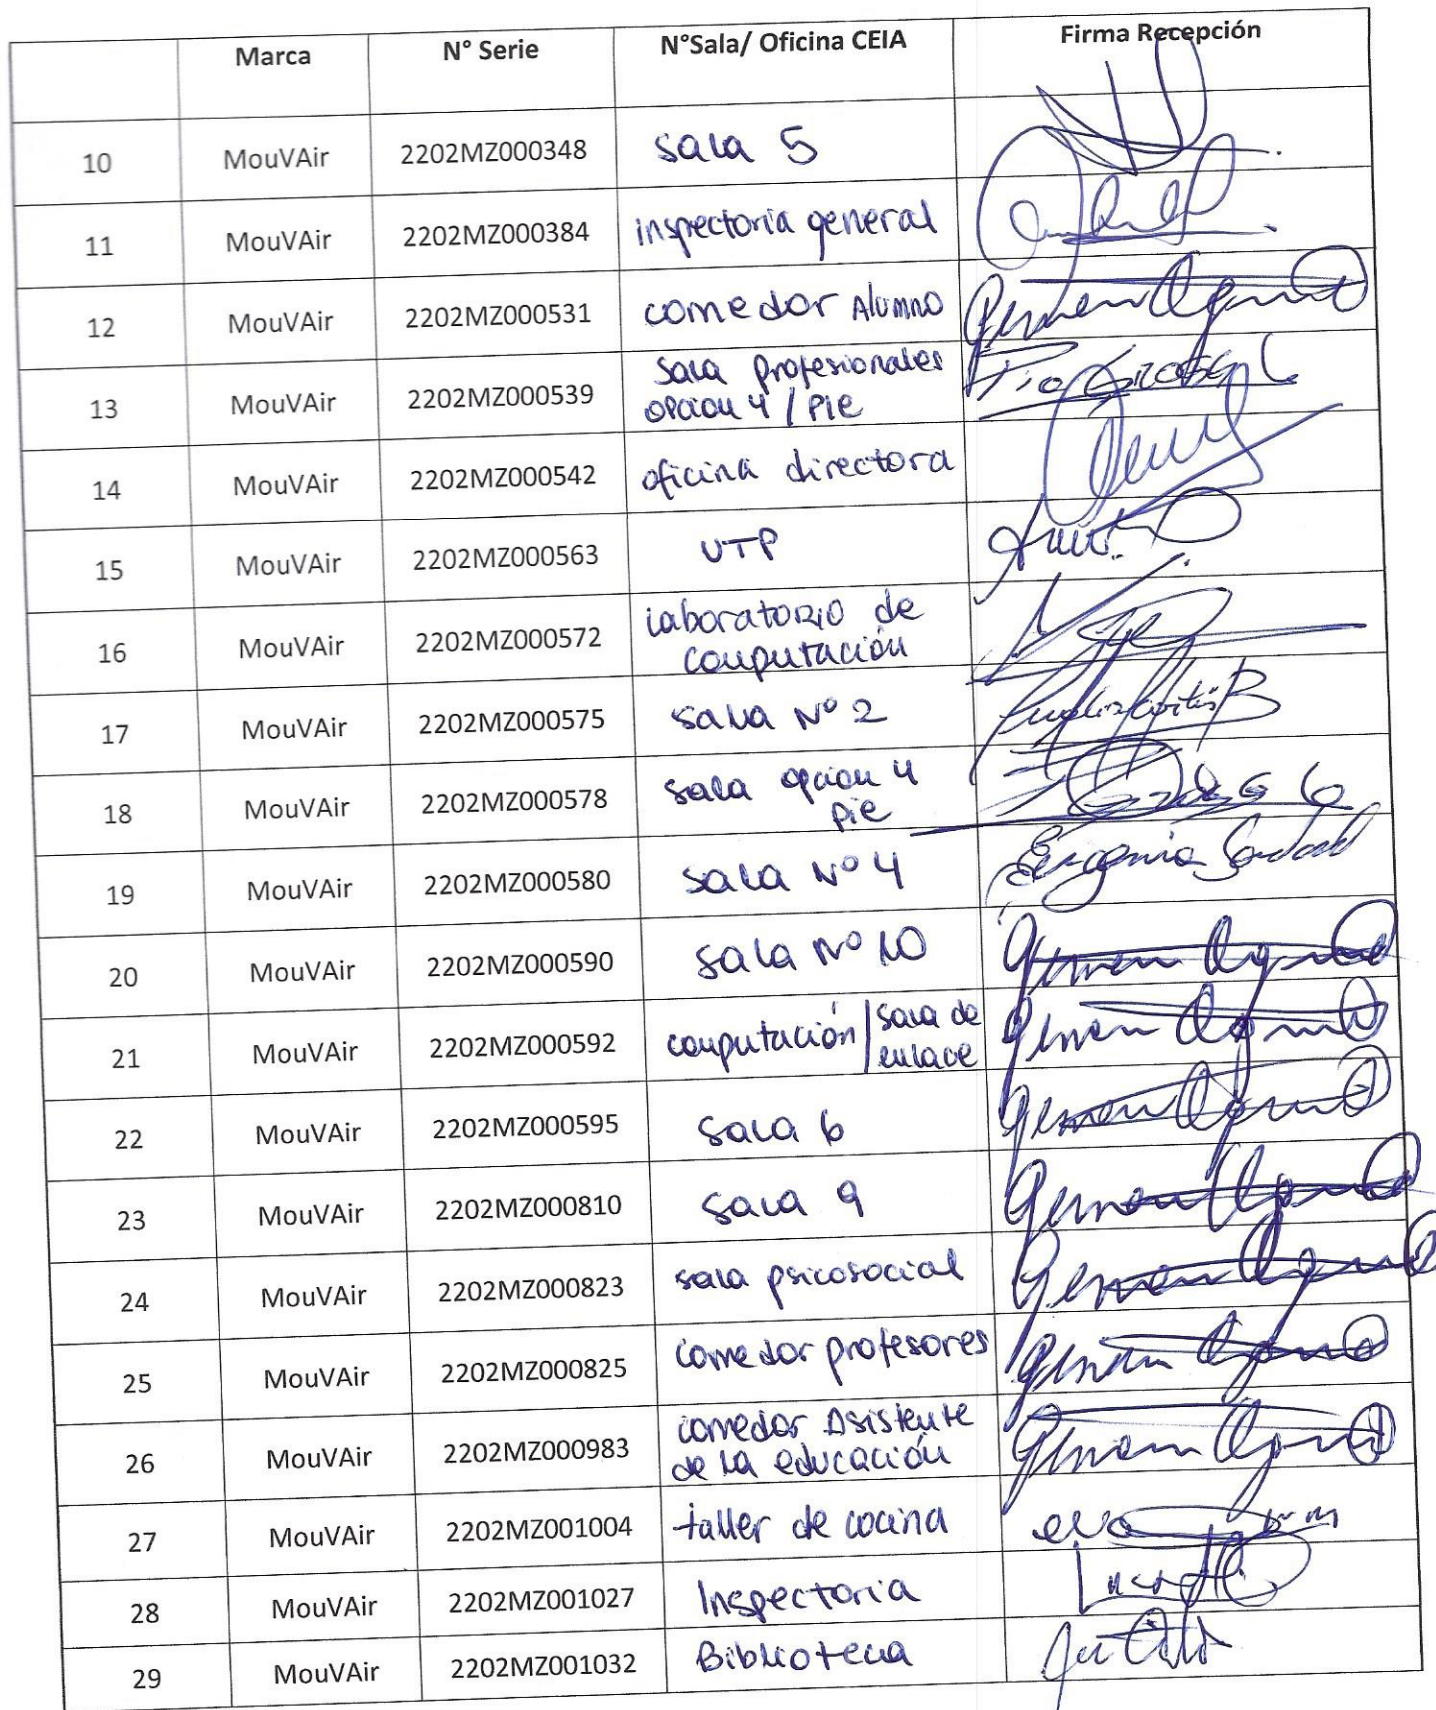 Marca N° Serie N°Sala/ Oficina CEIA Firma Recepción
10 MouVAir 2202MZ000348 sala 5
11 MouVAir 2202MZ000384 inspectoria general
12 MouVAir 2202MZ000531 comedor Alumno
13 MouVAir 2202MZ000539 sala profesionales
opcion 4 / PIE
14 MouVAir 2202MZ000542 oficina directora
15 MouVAir 2202MZ000563 UTP
16 MouVAir 2202MZ000572 laboratorio de
computación
17 MouVAir 2202MZ000575 sala N° 2
18 MouVAir 2202MZ000578 sala opcion 4
pie
19 MouVAir 2202MZ000580 sala N° 4 Eugenia
20 MouVAir 2202MZ000590 sala N° 10
21 MouVAir 2202MZ000592 computación / sala de
enlace
22 MouVAir 2202MZ000595 sala 6
23 MouVAir 2202MZ000810 sala 9
24 MouVAir 2202MZ000823 sala psicosocial
25 MouVAir 2202MZ000825 comedor profesores
26 MouVAir 2202MZ000983 comedor Asistente
de la educación
27 MouVAir 2202MZ001004 taller de cocina
28 MouVAir 2202MZ001027 Inspectoria
29 MouVAir 2202MZ001032 Biblioteca